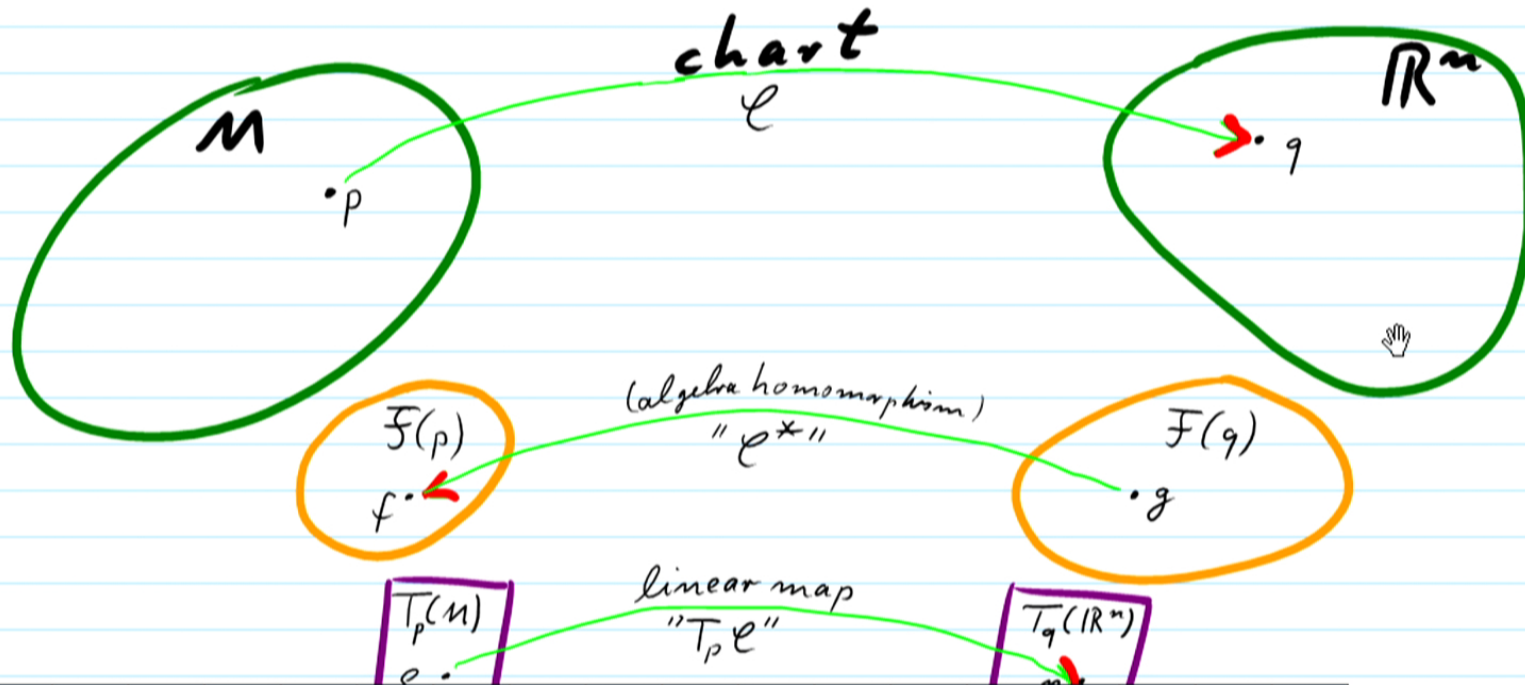 chart
φ
M
ℝⁿ
• p
• q
(algebra homomorphism)
"φ*"
F(p)
F(q)
f •
• g
linear map
"Tₚφ"
Tₚ(M)
T_q(ℝⁿ)